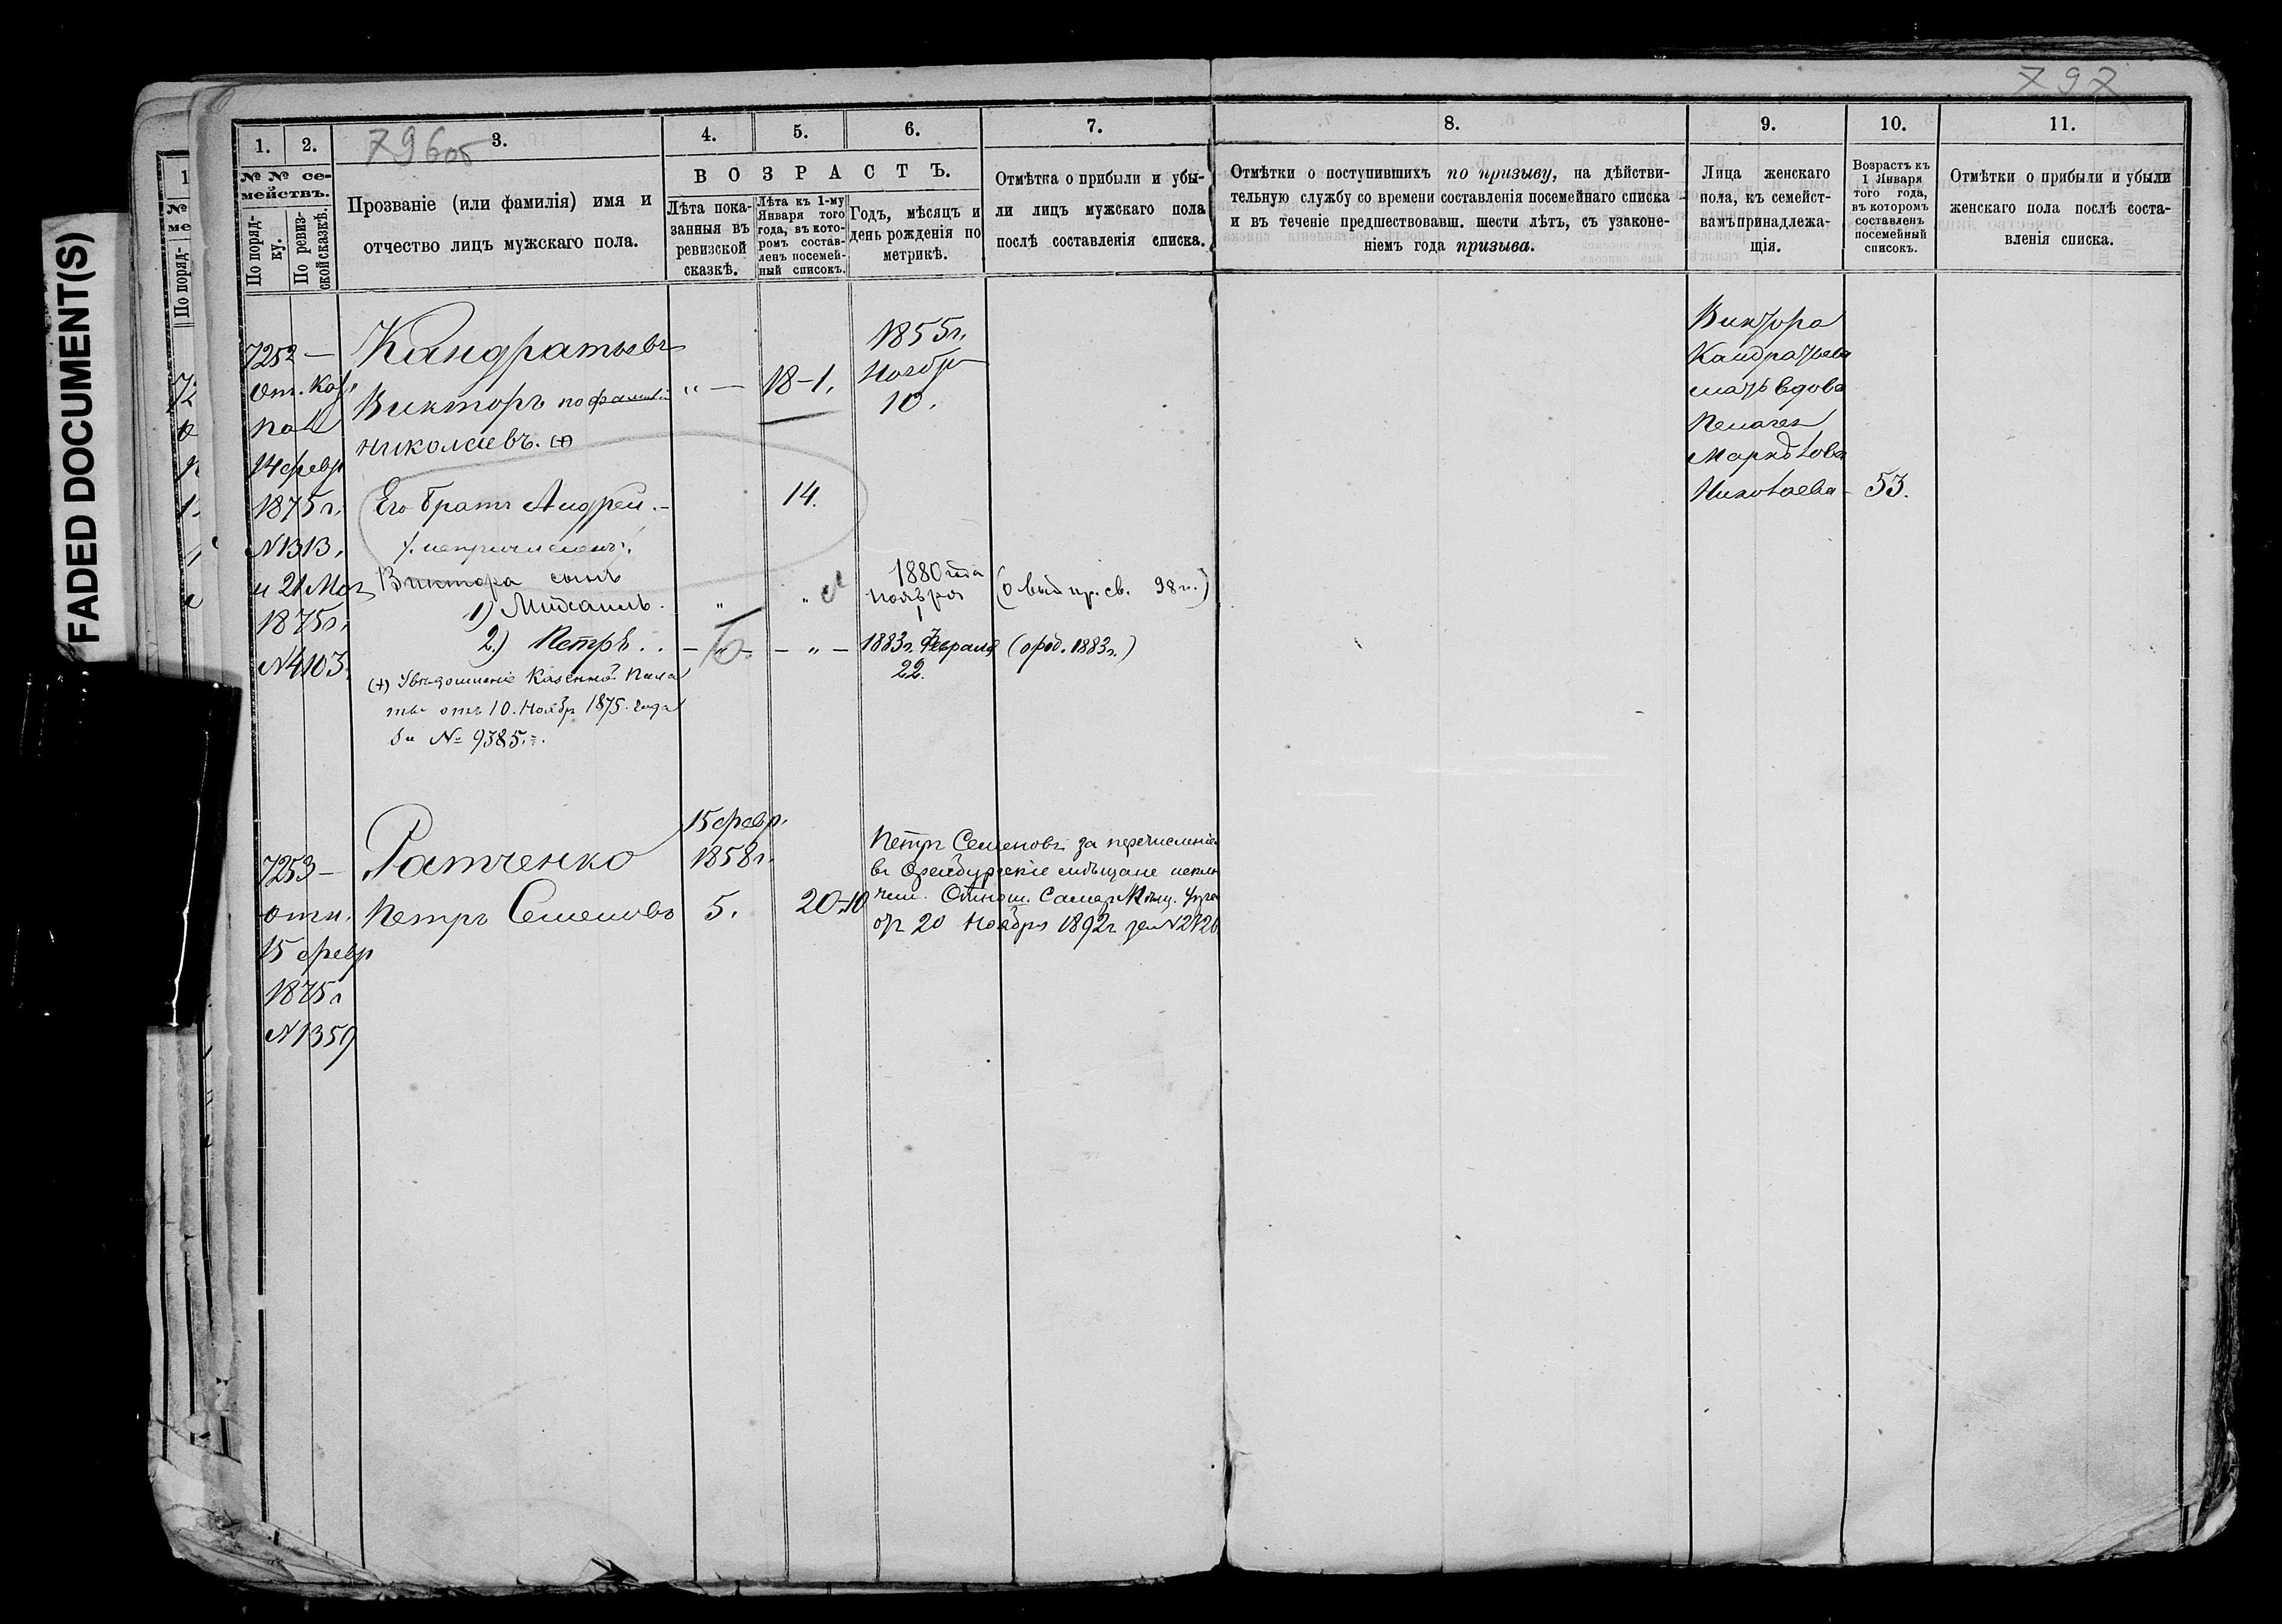 FADED DOCUMENT(S)
797
796об
1.
2.
3.
4.
5.
6.
7.
8.
9.
10.
11.
№ № се-
мействъ.
По поряд-
ку.
По ревиз-
ской сказкѣ.
Прозваніе (или фамилія) имя и
отчество лицъ мужскаго пола.
ВОЗРАСТЪ.
Лѣта пока-
занныя въ
ревизской
сказкѣ.
Лѣта къ 1-му
Января того
года, въ кото-
ромъ состав-
ленъ посемей-
ный списокъ.
Годъ, мѣсяцъ и
день рожденія по
метрикѣ.
Отмѣтка о прибыли и убы-
ли лицъ мужскаго пола
послѣ составленія списка.
Отмѣтки о поступившихъ по призыву, на дѣйстви-
тельную службу со времени составленія посемейнаго списка
и въ теченіе предшествовавш. шести лѣтъ, съ узаконе-
ніемъ года призыва.
Лица женскаго
пола, къ семейст-
вамъ принадлежа-
щія.
Возрастъ къ
1 Января
того года,
въ которомъ
составленъ
посемейный
списокъ.
Отмѣтки о прибыли и убыли
женскаго пола послѣ соста-
вленія списка.
7252 —
От. Каз.
Пал
14 февр
1875 г.
№ 1313.
и 21 Мая
1875 г.
№ 4103.
Кандратьевъ
Викторъ по фамиліи
Николаевъ. (+)
" —
18-1.
1855 г.
Ноябр
10.
Его братъ Андрей. -
14.
/. непричисленъ ./
Виктора сынъ
1) Михаилъ.
"
"
1880 года
Ноября
1
(о выд. пр. св. 98 г.)
2.) Петръ . .
- " -
- " -
1883 г. Февраля
22.
(о род. 1883 г.)
(+) Увѣдомленіе Казенной Пала
ты отъ 10. Ноябр 1875. года
за № 9385.
Виктора
Кандратьева
мать вдова
Пелагея
Маркѣлова
Николаева - 53.
7253 —
отн.
15 февр
1875 г
№ 1359
Ратченко
Петръ Семеновъ
15 февр.
1858 г.
5.
20-10
Петръ Семеновъ за перечисленіе
въ Оренбургскіе мѣщане исклю
чен. Отнош. Самар Мѣщ. Упра
от 20 Ноября 1892 г за №